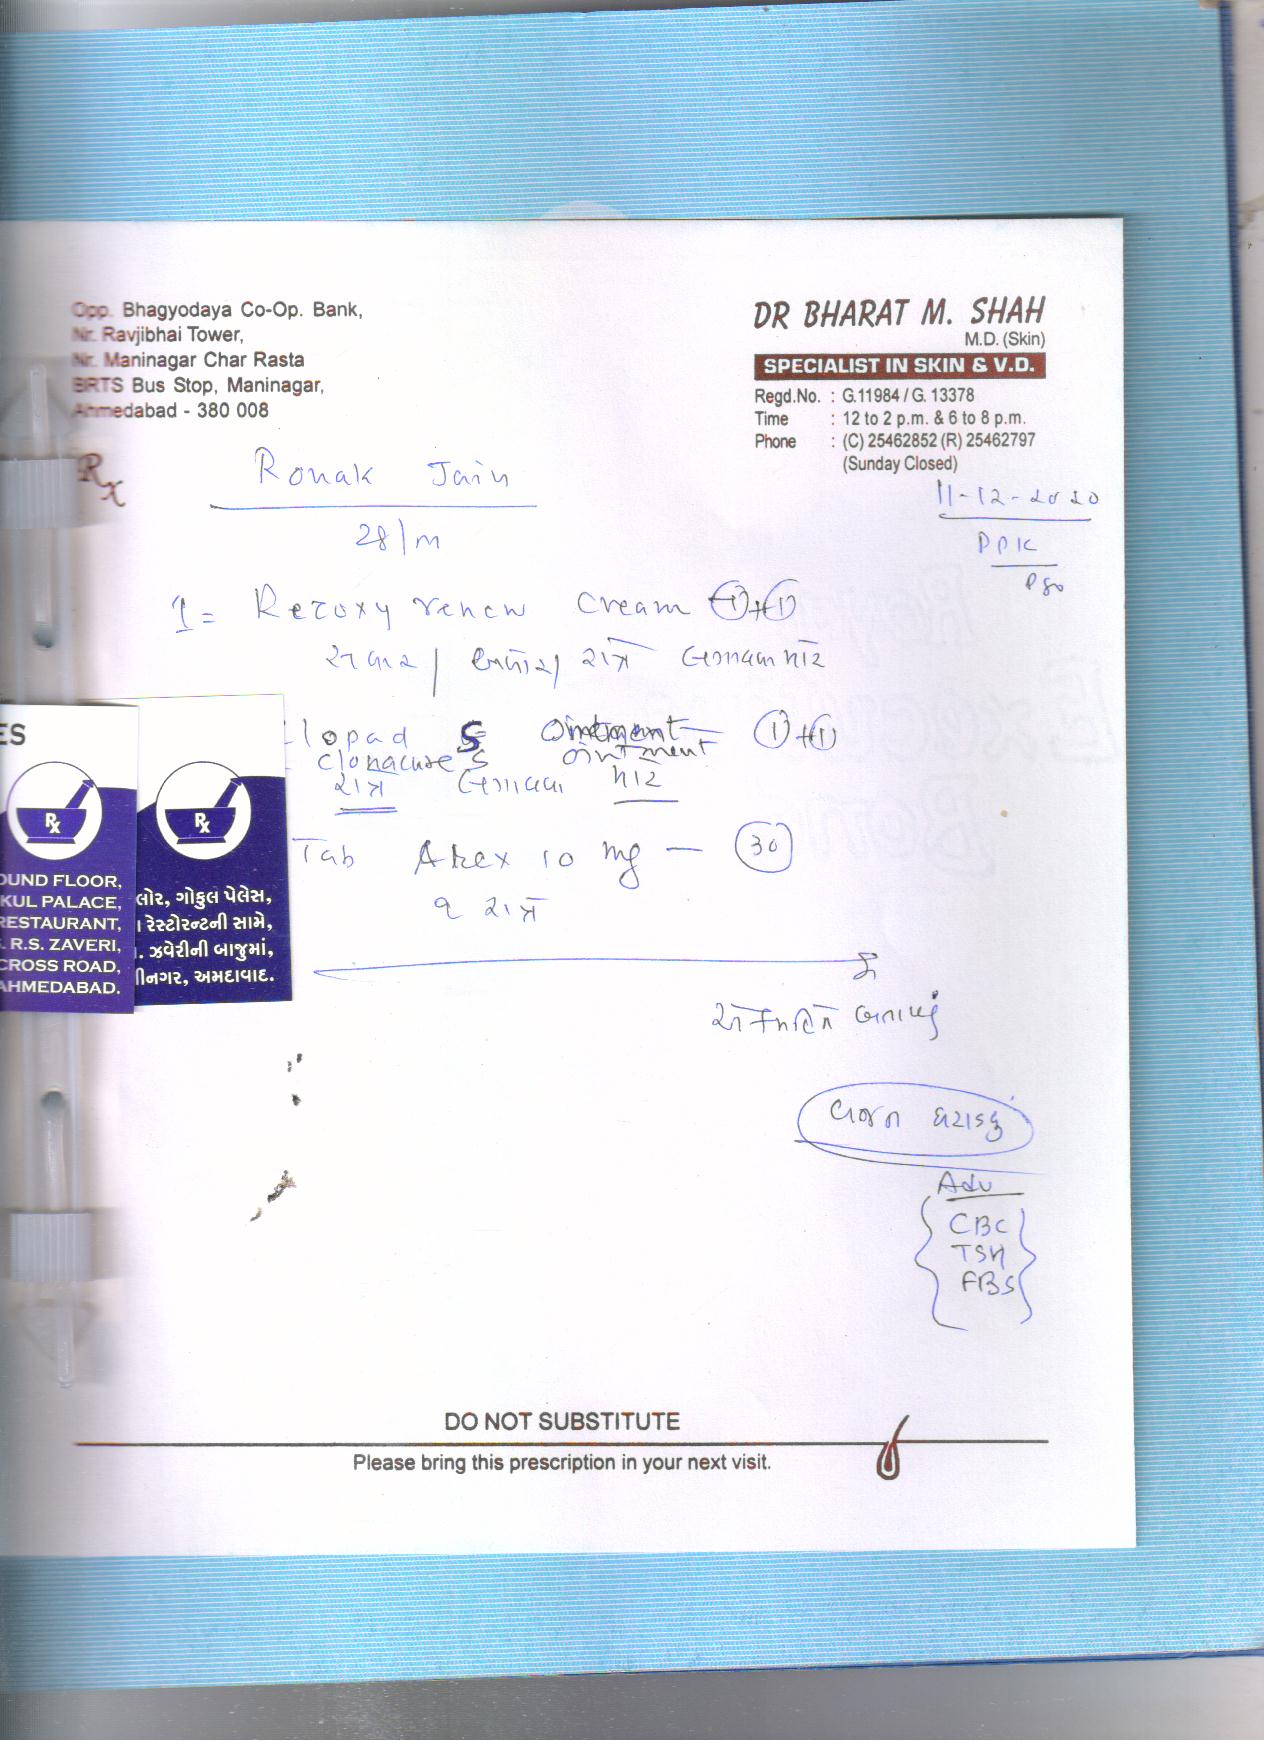 Opp. Bhagyodaya Co-Op. Bank,
Nr. Ravjibhai Tower,
Nr. Maninagar Char Rasta
BRTS Bus Stop, Maninagar,
Ahmedabad - 380 008
DR BHARAT M. SHAH
M.D. (Skin)
SPECIALIST IN SKIN & V.D.
Regd.No. : G.11984 / G. 13378
Time : 12 to 2 p.m. & 6 to 8 p.m.
Phone : (C) 25462852 (R) 25462797
(Sunday Closed)
Rx
Ronak Jain
28/m
11-12-2020
PPK
1 = Rezoxy renew cream 1+1
સવાર / બપોરે / રાત્રે લગાવવા માટે
lopad S ointment 1+1
clonacure S ointment
રાત્રે લગાવવા માટે
Tab Atex 10 mg — 30
૧ રાત્રે
બતાવવું
વજન ઘટાડવું
Adv
CBC
TSH
FBS
ES
Rx
OUND FLOOR,
KUL PALACE,
RESTAURANT,
R.S. ZAVERI,
CROSS ROAD,
AHMEDABAD.
Rx
લોર, ગોકુલ પેલેસ,
રેસ્ટોરન્ટની સામે,
. ઝવેરીની બાજુમાં,
ીનગર, અમદાવાદ.
DO NOT SUBSTITUTE
Please bring this prescription in your next visit.